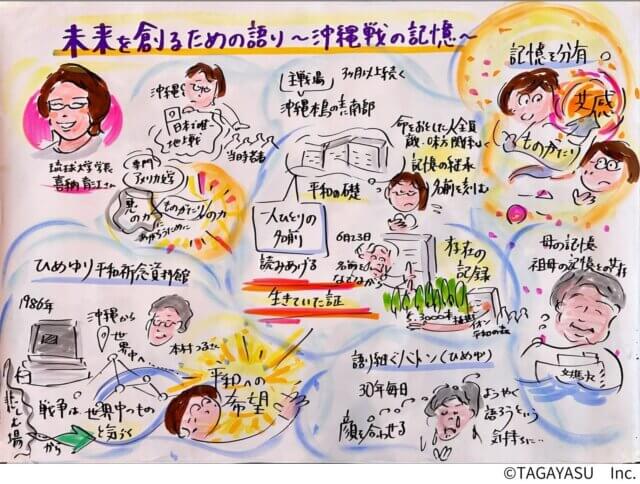 未来を創るための語り〜沖縄戦の記憶〜
琉球大学学長
喜納育江さん
沖縄
日本で唯一
地上戦
当時若者
専門
アメリカ文学
悪
の力
に
あがらうために
ものがたり
の力
主戦場
3ヶ月以上続く
沖縄本島の
南部
命をおとした人全員
敵・味方関係なく
平和の礎
記憶の継承
名前を
一人ひとりの
名前
読みあげる
生きていた証
6月23日
名前を
なでながら
存在の
記録
記憶を分有
共感
ものがたり
ひめゆり平和祈念資料館
1986年
沖縄から
世界中へ…
本村つるさん
悲しむ場
から
戦争は
世界中のもの
と気づく
平和への
希望
語り継ぐバトン(ひめゆり)
30年毎日
顔を合わせる
ようやく
語ろうという
気持ちに…
母の記憶
祖母の記憶を
イオン
平和の森
©TAGAYASU Inc.